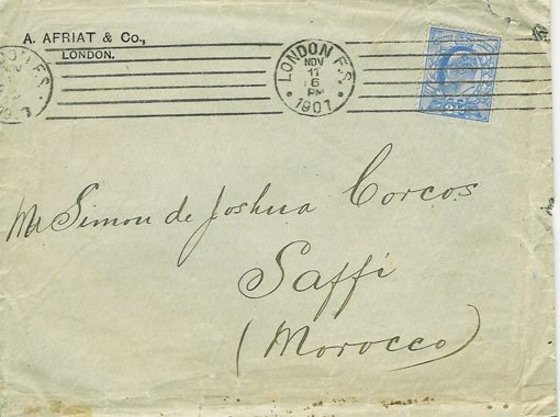 A. AFRIAT & Co.,
LONDON.
LONDON F.S.
NOV 11
6 PM
1907
Mr Simon de Joshua Corcos
Saffi
(Morocco)